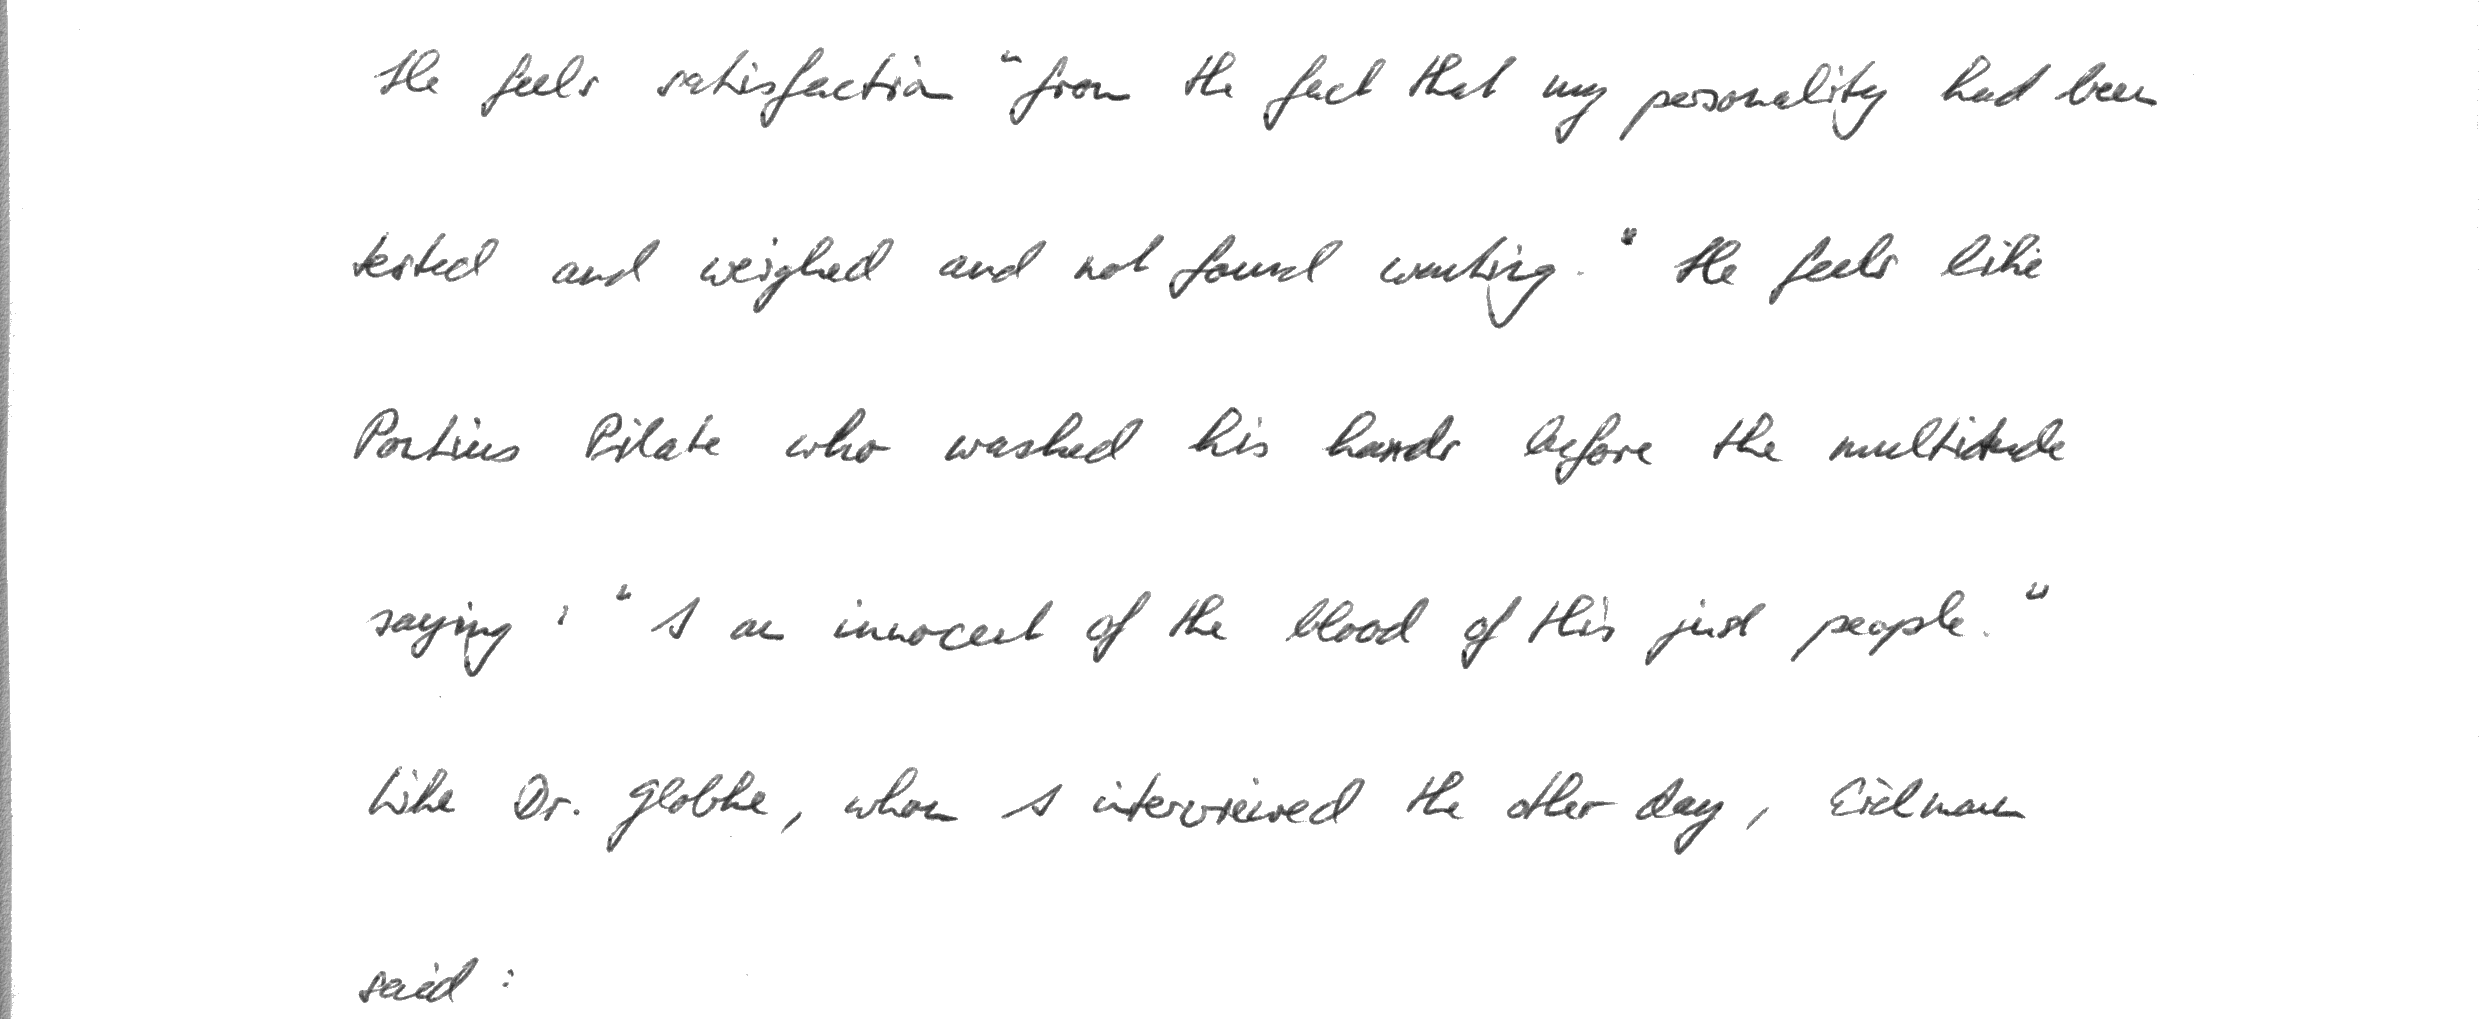 He feels satisfaction "from the fact that my personality had been
tested and weighed and not found wanting." He feels like
Pontius Pilate who washed his hands before the multitude
saying, "I am innocent of the blood of this just people."
Like Dr. Globke, whom I interviewed the other day, Eichmann
said: